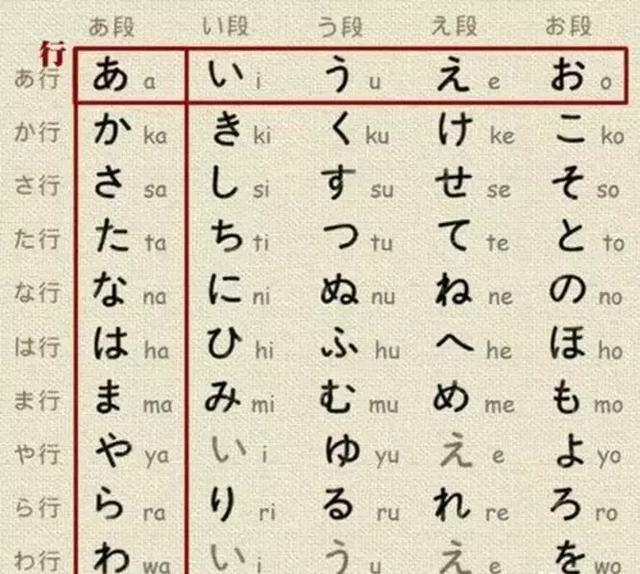 あ段 い段 う段 え段 お段
行
あ行 あ a い i う u え e お o
か行 か ka き ki く ku け ke こ ko
さ行 さ sa し si す su せ se そ so
た行 た ta ち ti つ tu て te と to
な行 な na に ni ぬ nu ね ne の no
は行 は ha ひ hi ふ hu へ he ほ ho
ま行 ま ma み mi む mu め me も mo
や行 や ya い i ゆ yu え e よ yo
ら行 ら ra り ri る ru れ re ろ ro
わ行 わ wa い i う u え e を wo